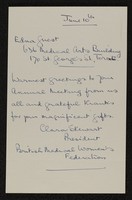 June 10th
Edna Guest
636 Medical Arts Building
170 St George St, Toronto
Warmest greetings to your
Annual Meeting from us
all and grateful thanks
for your magnificent gifts.
Clara Stewart
President
British Medical Women's
Federation